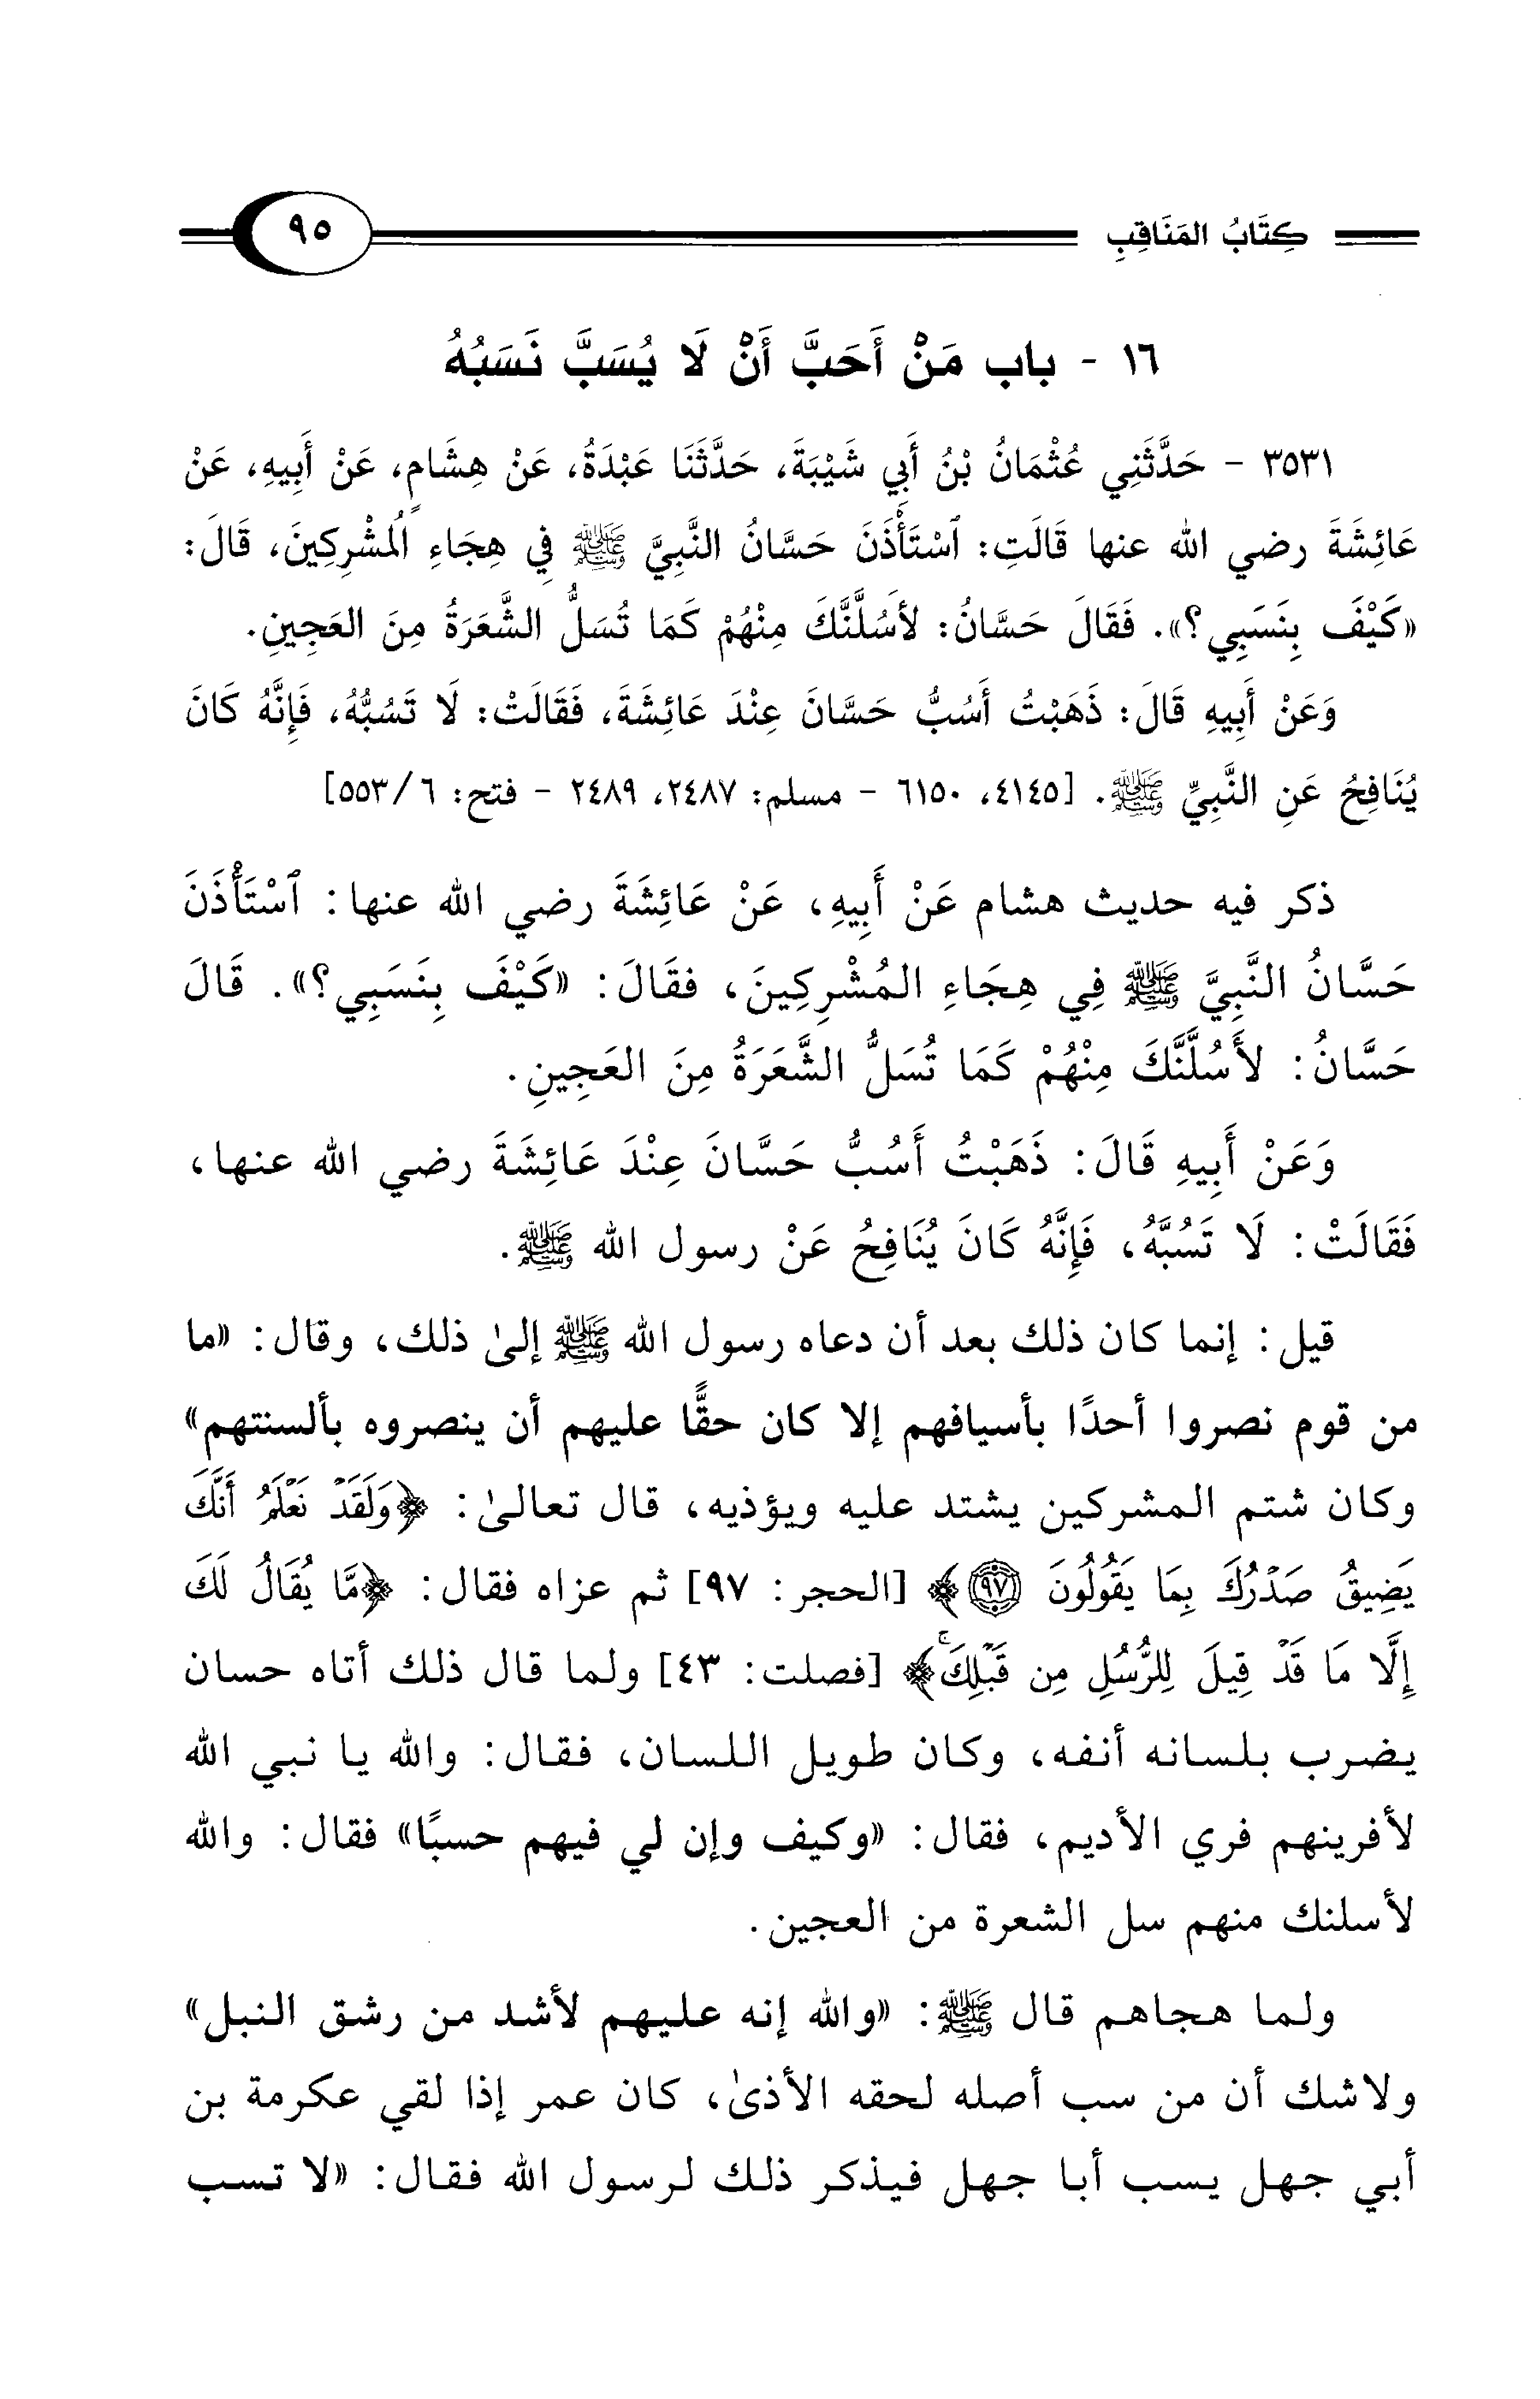 كِتَابُ المَنَاقِبِ
٩٥
١٦ - باب مَنْ أَحَبَّ أَنْ لَا يُسَبَّ نَسَبُهُ
٣٥٣١ - حَدَّثَنِي عُثْمَانُ بْنُ أَبِي شَيْبَةَ، حَدَّثَنَا عَبْدَةُ، عَنْ هِشَامٍ، عَنْ أَبِيهِ، عَنْ
عَائِشَةَ رضي الله عنها قَالَتِ: ٱسْتَأْذَنَ حَسَّانُ النَّبِيَّ ﷺ فِي هِجَاءِ المُشْرِكِينَ، قَالَ:
«كَيْفَ بِنَسَبِي؟». فَقَالَ حَسَّانُ: لأَسُلَّنَّكَ مِنْهُمْ كَمَا تُسَلُّ الشَّعَرَةُ مِنَ العَجِينِ.
وَعَنْ أَبِيهِ قَالَ: ذَهَبْتُ أَسُبُّ حَسَّانَ عِنْدَ عَائِشَةَ، فَقَالَتْ: لَا تَسُبُّهُ، فَإِنَّهُ كَانَ
يُنَافِحُ عَنِ النَّبِيِّ ﷺ. [٤١٤٥، ٦١٥٠ - مسلم: ٢٤٨٧، ٢٤٨٩ - فتح: ٦/ ٥٥٣]
ذكر فيه حديث هشام عَنْ أَبِيهِ، عَنْ عَائِشَةَ رضي الله عنها: ٱسْتَأْذَنَ
حَسَّانُ النَّبِيَّ ﷺ فِي هِجَاءِ المُشْرِكِينَ، فقَالَ: «كَيْفَ بِنَسَبِي؟». قَالَ
حَسَّانُ: لأَسُلَّنَّكَ مِنْهُمْ كَمَا تُسَلُّ الشَّعَرَةُ مِنَ العَجِينِ.
وَعَنْ أَبِيهِ قَالَ: ذَهَبْتُ أَسُبُّ حَسَّانَ عِنْدَ عَائِشَةَ رضي الله عنها،
فَقَالَتْ: لَا تَسُبَّهُ، فَإِنَّهُ كَانَ يُنَافِحُ عَنْ رسول الله ﷺ.
قيل: إنما كان ذلك بعد أن دعاه رسول الله ﷺ إلىٰ ذلك، وقال: «ما
من قوم نصروا أحدًا بأسيافهم إلا كان حقًّا عليهم أن ينصروه بألسنتهم»
وكان شتم المشركين يشتد عليه ويؤذيه، قال تعالىٰ: ﴿وَلَقَدْ نَعْلَمُ أَنَّكَ
يَضِيقُ صَدْرُكَ بِمَا يَقُولُونَ ٩٧﴾ [الحجر: ٩٧] ثم عزاه فقال: ﴿مَّا يُقَالُ لَكَ
إِلَّا مَا قَدْ قِيلَ لِلرُّسُلِ مِن قَبْلِكَۚ﴾ [فصلت: ٤٣] ولما قال ذلك أتاه حسان
يضرب بلسانه أنفه، وكان طويل اللسان، فقال: والله يا نبي الله
لأفرينهم فري الأديم، فقال: «وكيف وإن لي فيهم حسبًا» فقال: والله
لأسلنك منهم سل الشعرة من العجين.
ولما هجاهم قال ﷺ: «والله إنه عليهم لأشد من رشق النبل»
ولاشك أن من سب أصله لحقه الأذىٰ، كان عمر إذا لقي عكرمة بن
أبي جهل يسب أبا جهل فيذكر ذلك لرسول الله فقال: «لا تسب